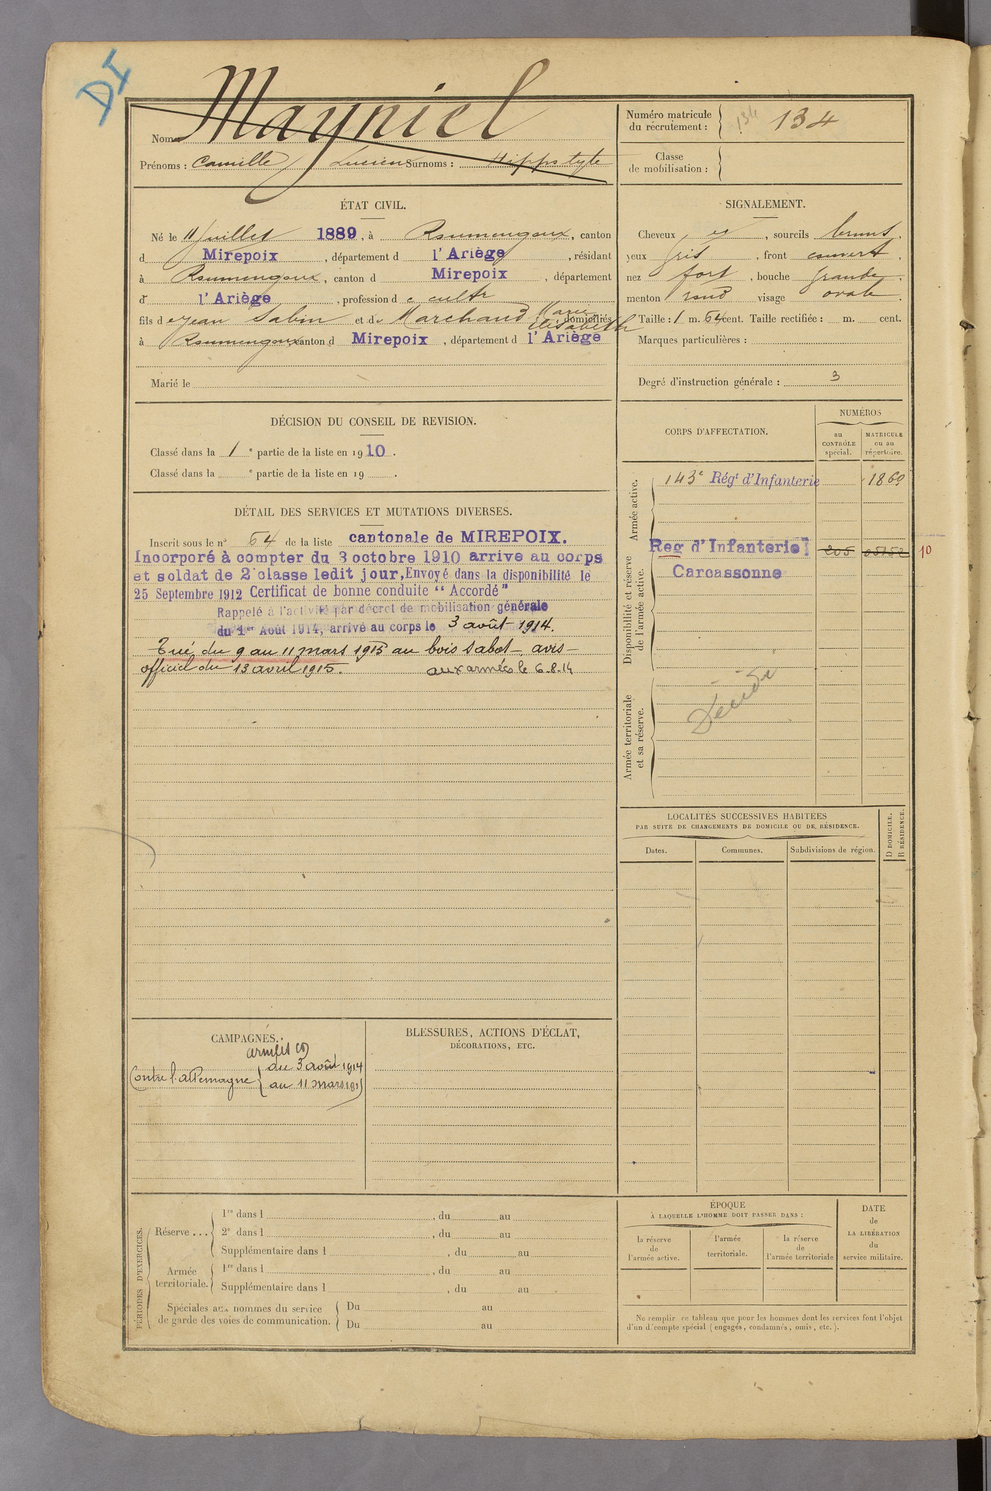 DI
Nom Mayniel
Prénoms : Camille Lucien Surnoms : Hippolyte
Numéro matricule du recrutement : 134 134
Classe de mobilisation :
ÉTAT CIVIL.
Né le 11 juillet 1889, à Roumengoux, canton
d Mirepoix, département d l'Ariège, résidant
à Roumengoux, canton d Mirepoix, département
d' l'Ariège, profession d e cultr
fils d e Jean Sabin et d Marchand Marie Elisabeth domiciliés
à Roumengoux canton d Mirepoix, département d l'Ariège
Marié le
SIGNALEMENT.
Cheveux et, sourcils bruns
yeux gris, front couvert,
nez fort, bouche grande
menton rond visage ovale.
Taille : 1 m. 64 cent. Taille rectifiée : m. cent.
Marques particulières :
Degré d'instruction générale : 3
DÉCISION DU CONSEIL DE REVISION.
Classé dans la 1 e partie de la liste en 1910.
Classé dans la e partie de la liste en 19 .
DÉTAIL DES SERVICES ET MUTATIONS DIVERSES.
Inscrit sous le n° 64 de la liste cantonale de MIREPOIX.
Incorporé à compter du 3 octobre 1910 arrive au corps
et soldat de 2e classe ledit jour, Envoyé dans la disponibilité le
25 Septembre 1912 Certificat de bonne conduite "Accordé"
Rappelé à l'activité par décret de mobilisation générale
du 1er Août 1914, arrivé au corps le 3 août 1914.
Tué du 9 au 11 mars 1915 au bois Sabot - avis -
officiel du 13 avril 1915. aux armées le 6.8.14
CORPS D'AFFECTATION.
NUMÉROS
au contrôle spécial.
MATRICULE ou au répertoire.
Armée active.
143e Régt d'Infanterie 1869
Disponibilité et réserve de l'armée active.
Reg d'Infanterie 205 10
Carcassonne
Armée territoriale et sa réserve.
Décédé
LOCALITÉS SUCCESSIVES HABITÉES
PAR SUITE DE CHANGEMENTS DE DOMICILE OU DE RÉSIDENCE.
Dates. Communes. Subdivisions de région. D DOMICILE. R RÉSIDENCE.
CAMPAGNES.
armées (6)
Contre l'allemagne { du 3 août 1914
au 11 mars 1915
BLESSURES, ACTIONS D'ÉCLAT,
DÉCORATIONS, ETC.
PÉRIODES D'EXERCICES.
Réserve ...
1re dans l , du au
2e dans l , du au
Supplémentaire dans l , du au
Armée territoriale.
1re dans l , du au
Supplémentaire dans l , du au
Spéciales aux hommes du service de garde des voies de communication.
Du au
Du au
ÉPOQUE
À LAQUELLE L'HOMME DOIT PASSER DANS :
la réserve de l'armée active.
l'armée territoriale.
la réserve de l'armée territoriale
DATE de LA LIBÉRATION du service militaire.
Ne remplir ce tableau que pour les hommes dont les services font l'objet
d'un décompte spécial (engagés, condamnés, omis, etc.).